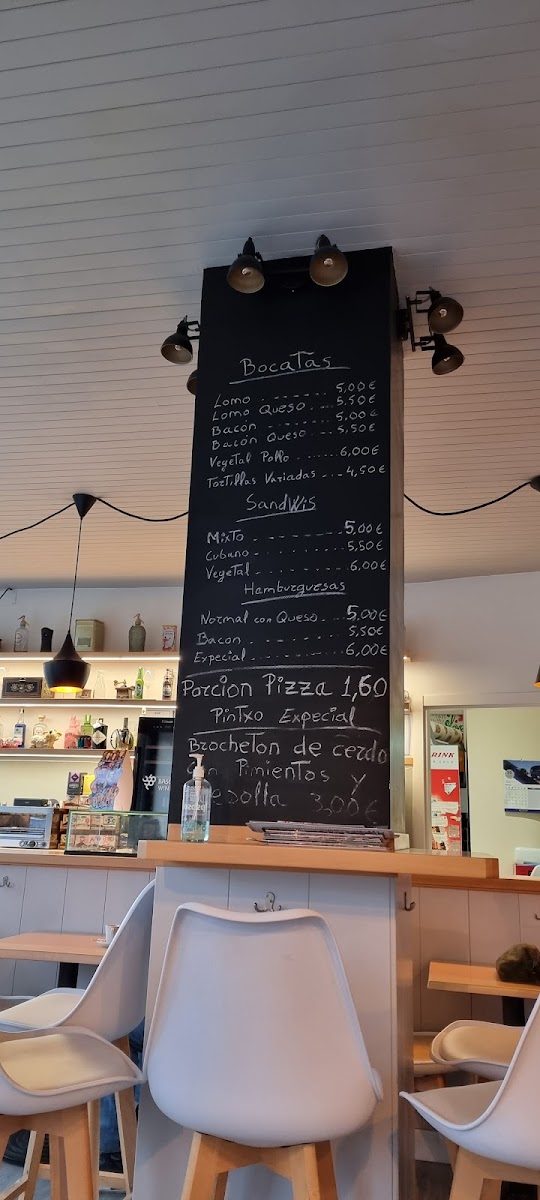 Bocatas
Lomo ------- 5,00€
Lomo Queso ... 5,50€
Bacón ------- 5,00€
Bacón Queso ... 5,50€
Vegetal Pollo ...... 6,00€
Tortillas Variadas ... 4,50€
SandWis
Mixto ---------- 5,00€
Cubano ---------- 5,50€
Vegetal ---------- 6,00€
Hamburguesas
Normal con Queso ... 5,00€
Bacon ---------- 5,50€
Expecial ---------- 6,00€
Porcion Pizza 1,60
Pintxo Expecial
Brocheton de cerdo
Con Pimientos y
3,00€
RINK